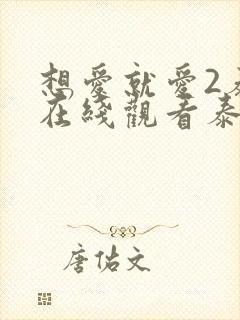 想愛就愛2
在綫觀看泰
唐佑文